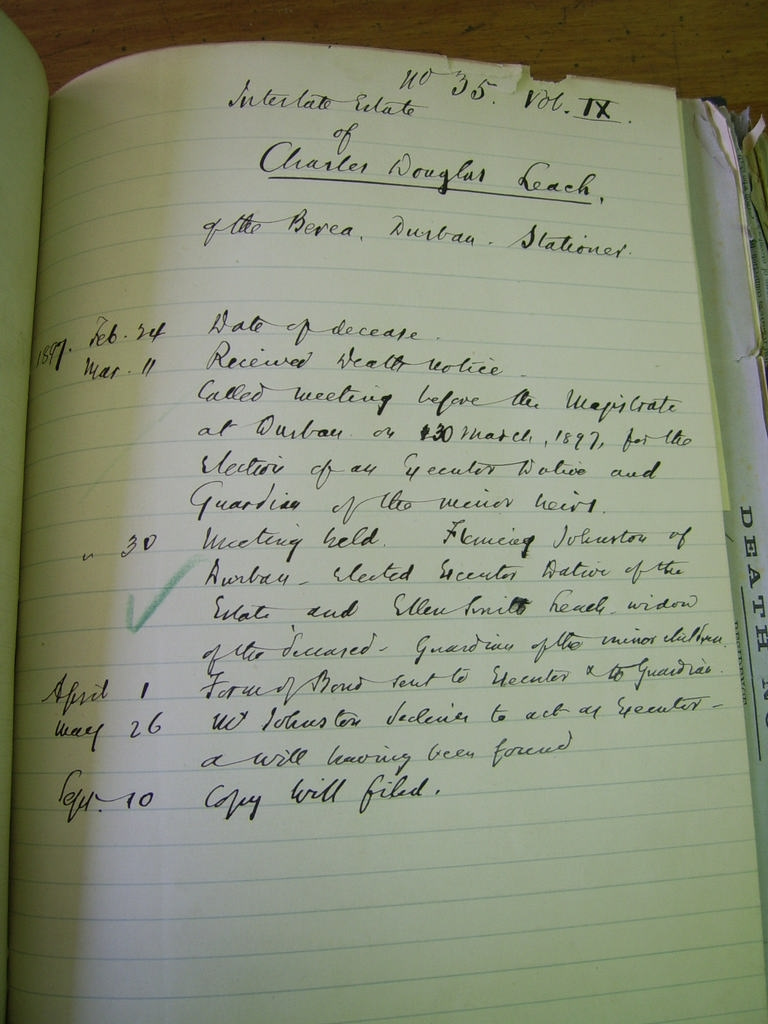 No 35. Vol. IX.
Intestate Estate
of
Charles Douglas Leach,
of the Berea, Durban. Stationer.
1897. Feb. 24 Date of decease.
Mar. 11 Received Death notice.
Called meeting before the Magistrate
at Durban on 30 March, 1897, for the
Election of an Executor Dative and
Guardian of the minor heirs.
" 30 Meeting held. Fleming Johnston of
Durban - elected Executor Dative of the
Estate and Ellen Smith Leach widow
of the deceased - Guardian of the minor children.
April 1 Form of Bond sent to Executor & to Guardian.
May 26 Mr Johnston declines to act as Executor -
a will having been found
Sept. 10 Copy Will filed.
DEATH NO